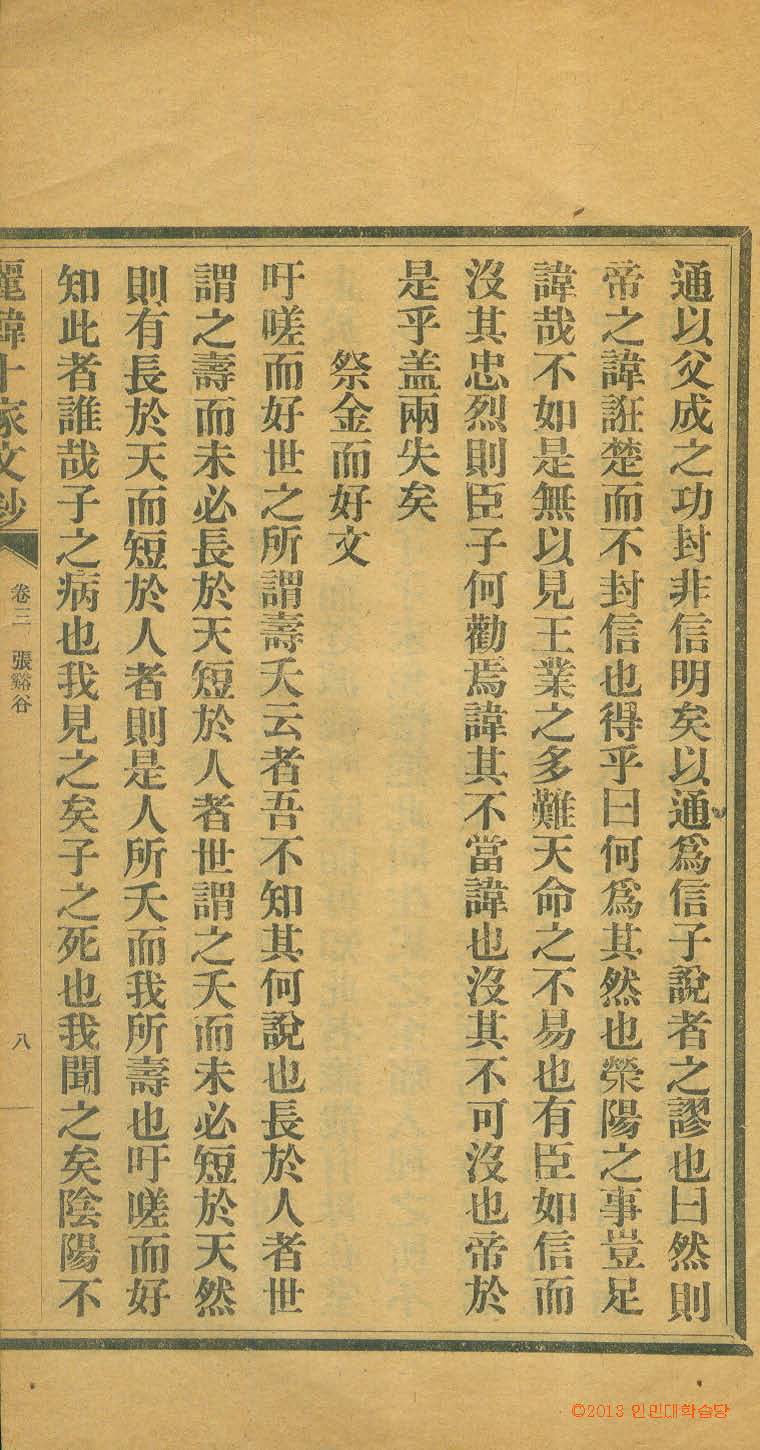 通以父成之功封非信明矣以通爲信子說者之謬也曰然則
帝之諱誑楚而不封信也得乎曰何爲其然也滎陽之事豈足
諱哉不如是無以見王業之多難天命之不易也有臣如信而
沒其忠烈則臣子何勸焉諱其不當諱也沒其不可沒也帝於
是乎盖兩失矣
祭金而好文
吁嗟而好世之所謂壽夭云者吾不知其何說也長於人者世
謂之壽而未必長於天短於人者世謂之夭而未必短於天然
則有長於天而短於人者則是人所夭而我所壽也吁嗟而好
知此者誰哉子之病也我見之矣子之死也我聞之矣陰陽不
麗韓十家文鈔
卷三 張谿谷
八
©2013 인민대학습당